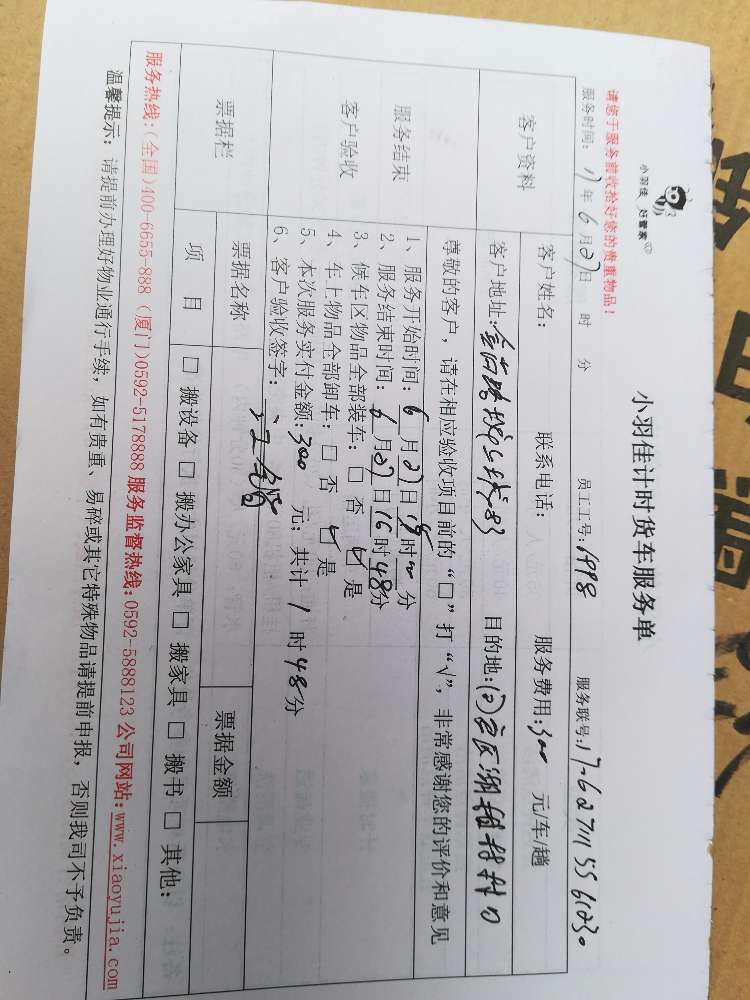 小羽佳 好管家
小羽佳计时货车服务单
请您于服务前收拾好您的贵重物品！
服务时间: 17年 6月27日 时 分 员工工号: 1998 服务联号: 17-6271115561230
客户资料
客户姓名: 联系电话: 服务费用: 300 元/车/趟
客户地址: 目的地:
服务结束
客户验收
尊敬的客户，请在相应验收项目前的“□”打“√”，非常感谢您的评价和意见
1、服务开始时间: 6月27日 时 分
2、服务结束时间: 6月27日16时48分
3、候车区物品全部装车: □ 否 ☑ 是
4、车上物品全部卸车: □ 否 ☑ 是
5、本次服务实付金额: 300 元; 共计 1 时 48分
6、客户验收签字:
票据栏
票据名称 票据金额
项 目 □ 搬设备 □ 搬办公家具 □ 搬家具 □ 搬书 □ 其他:
服务热线:(全国)400-6655-888 (厦门)0592-5178888 服务监督热线:0592-5888123 公司网站:www.xiaoyujia.com
温馨提示: 请提前办理好物业通行手续，如有贵重、易碎或其它特殊物品请提前申报，否则我司不予负责。